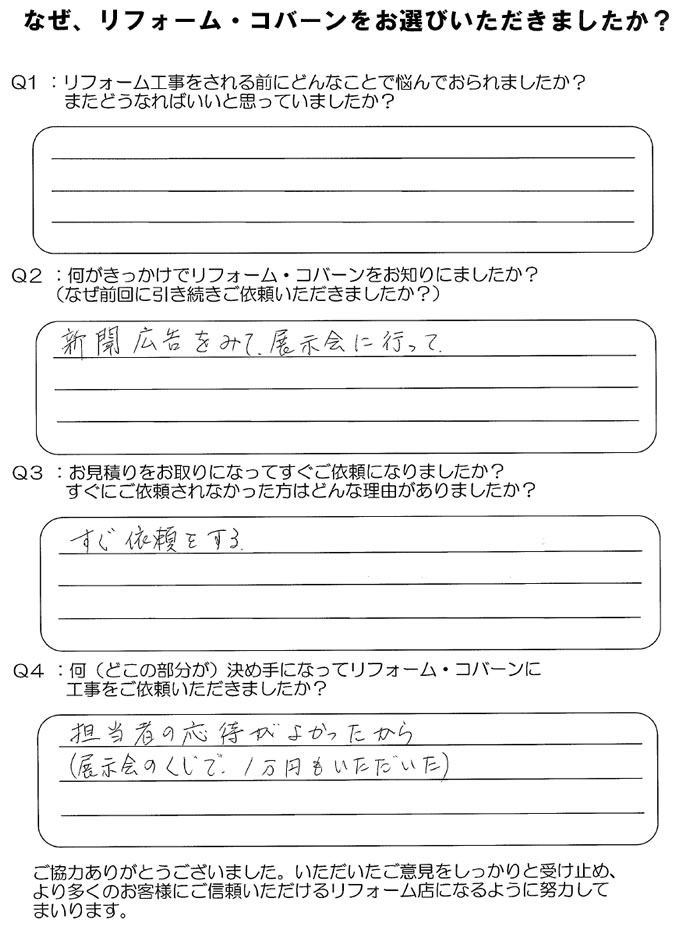 なぜ、リフォーム・コバーンをお選びいただきましたか？
Q1 ：リフォーム工事をされる前にどんなことで悩んでおられましたか？
またどうなればいいと思っていましたか？
Q2 ：何がきっかけでリフォーム・コバーンをお知りにましたか？
（なぜ前回に引き続きご依頼いただきましたか？）
新聞広告をみて、展示会に行って、
Q3 ：お見積りをお取りになってすぐご依頼になりましたか？
すぐにご依頼されなかった方はどんな理由がありましたか？
すぐ依頼をする、
Q4 ：何（どこの部分が）決め手になってリフォーム・コバーンに
工事をご依頼いただきましたか？
担当者の応待がよかったから
（展示会のくじで、1万円もいただいた）
ご協力ありがとうございました。いただいたご意見をしっかりと受け止め、
より多くのお客様にご信頼いただけるリフォーム店になるように努力して
まいります。